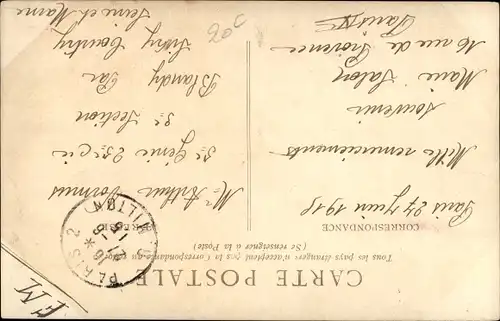 CARTE POSTALE
Tous les pays étrangers n'acceptent pas la Correspondance au
(Se renseigner à la Poste)
CORRESPONDANCE
Paris 27 Juin 1918
Mille remerciements
Souvenir
Marie Salon
16 rue de Provence
Paris IXe
Mr Arthur
5e Génie 25e Cie
5e Section
Blandy Par
Sivry Courtry
Seine et Marne
PARIS 2 *
FM